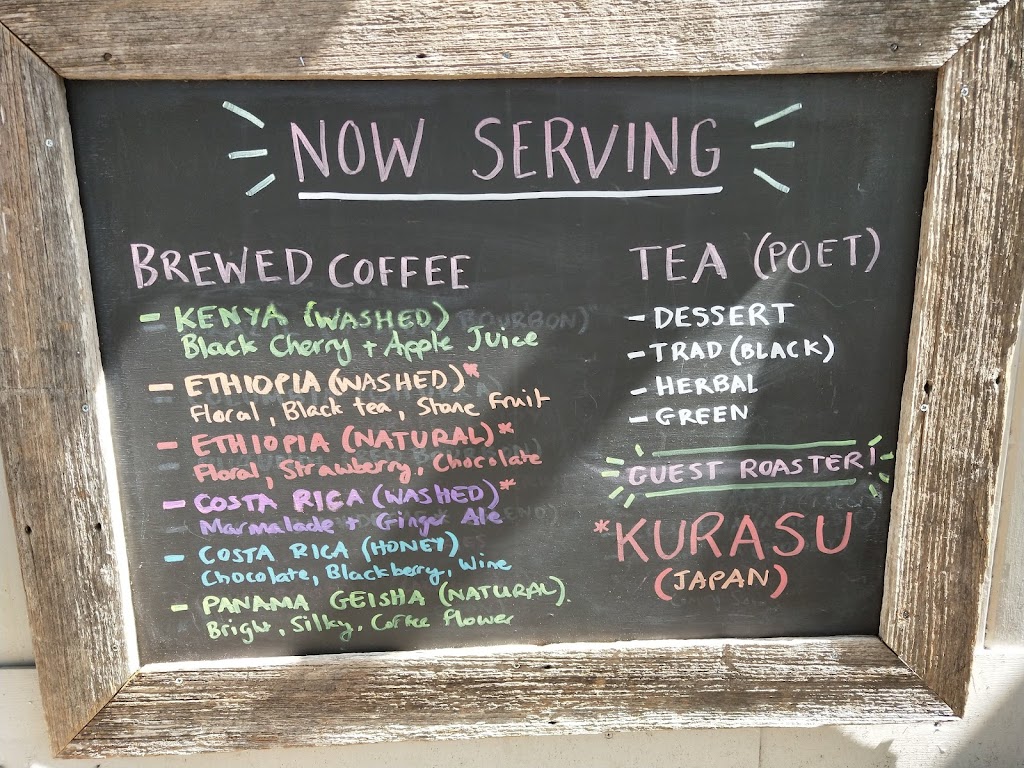 NOW SERVING
BREWED COFFEE
- KENYA (WASHED)
Black Cherry + Apple Juice
- ETHIOPIA (WASHED)*
Floral, Black tea, Stone Fruit
- ETHIOPIA (NATURAL)*
Floral, Strawberry, Chocolate
- COSTA RICA (WASHED)*
Marmalade + Ginger Ale
- COSTA RICA (HONEY)
Chocolate, Blackberry, Wine
- PANAMA GEISHA (NATURAL).
Bright, Silky, Coffee flower
TEA (POET)
- DESSERT
- TRAD (BLACK)
- HERBAL
- GREEN
GUEST ROASTER!
*KURASU
(JAPAN)